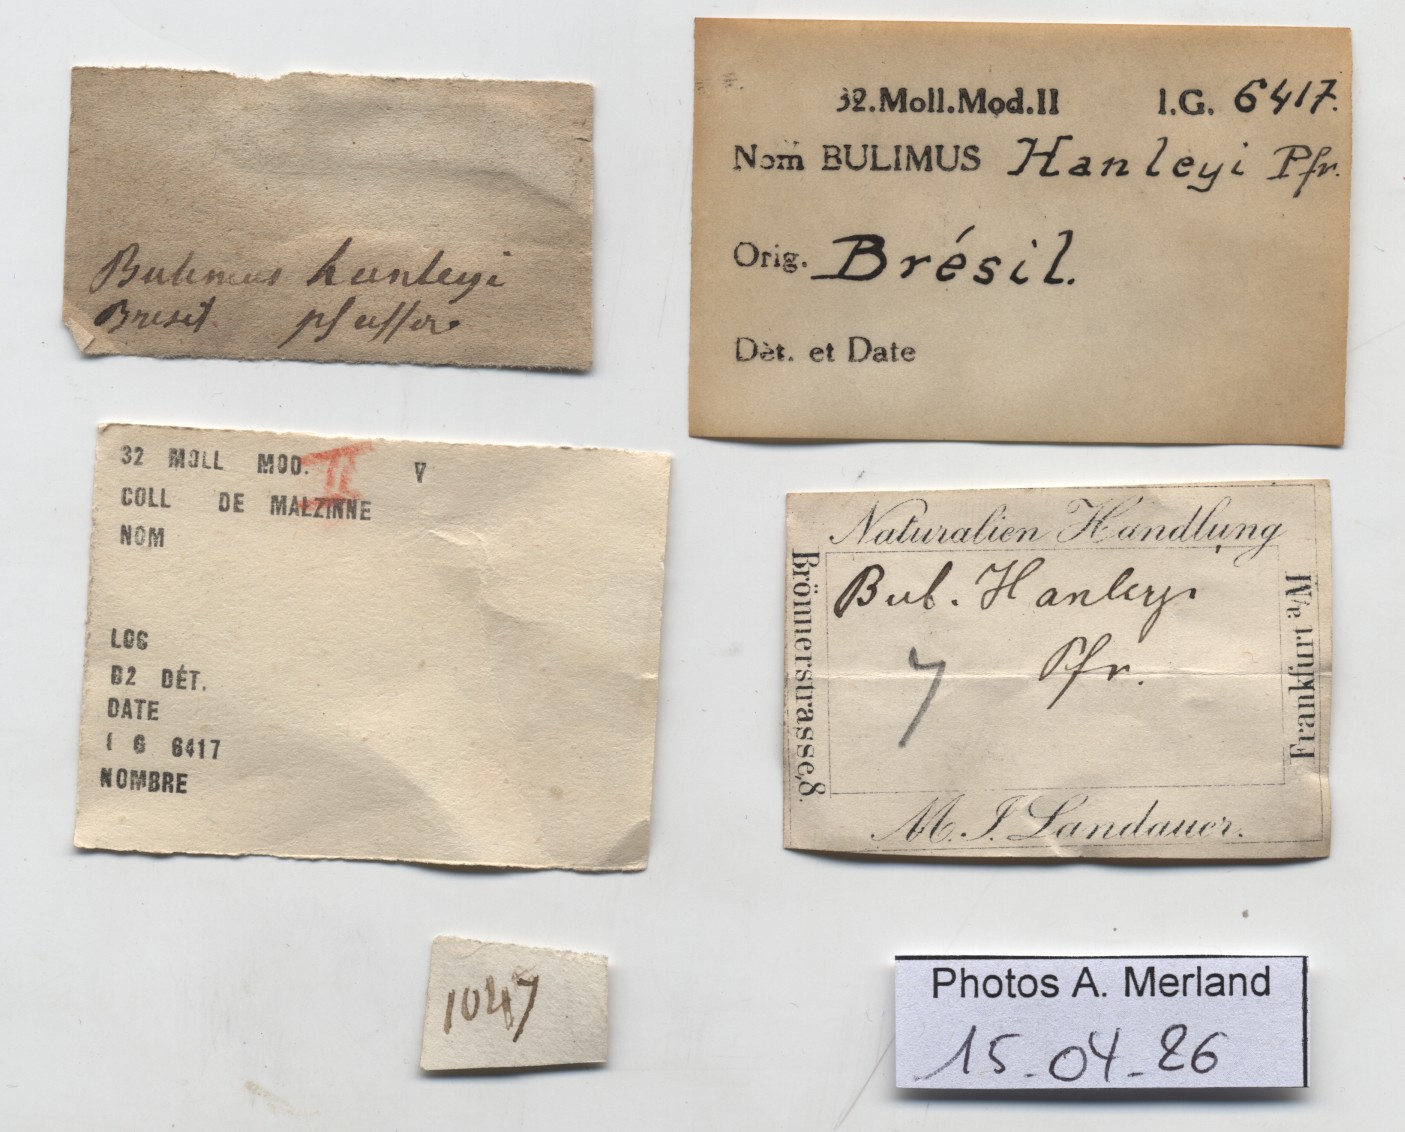 Bulimus hanleyi
Bresil. pfeiffer
32.Moll.Mod.II I.G. 6417.
Nom BULIMUS Hanleyi Pfr.
Orig. Brésil.
Dèt. et Date
32 MOLL MOD. II V
COLL DE MALZINNE
NOM
LOC
D2 DÉT.
DATE
I G 6417
NOMBRE
Naturalien Handlung
Brönnerstrasse, 8.
Bul. Hanleyi
Pfr.
7
Frankfurt a/M
M. J. Landauer.
1047
Photos A. Merland
15-04-26